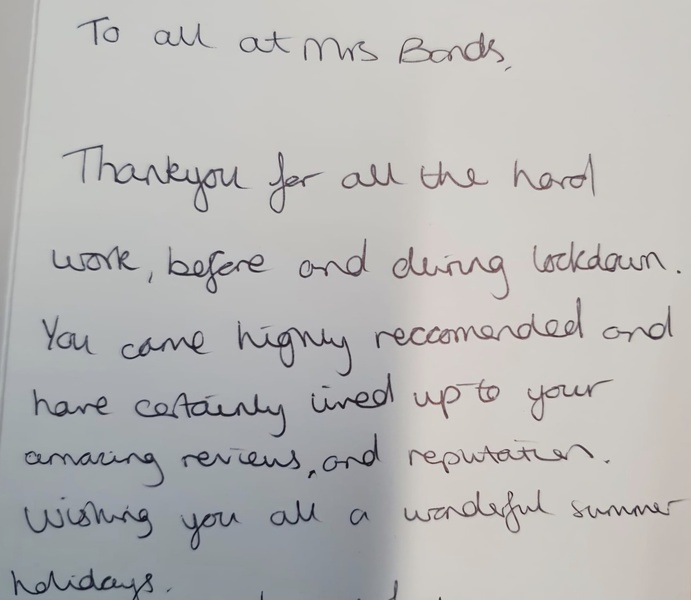 To all at Mrs Bonds,
Thankyou for all the hard
work, before and during lockdown.
You came highly reccomended and
have certainly lived up to your
amazing reviews, and reputation.
Wishing you all a wonderful summer
holidays.